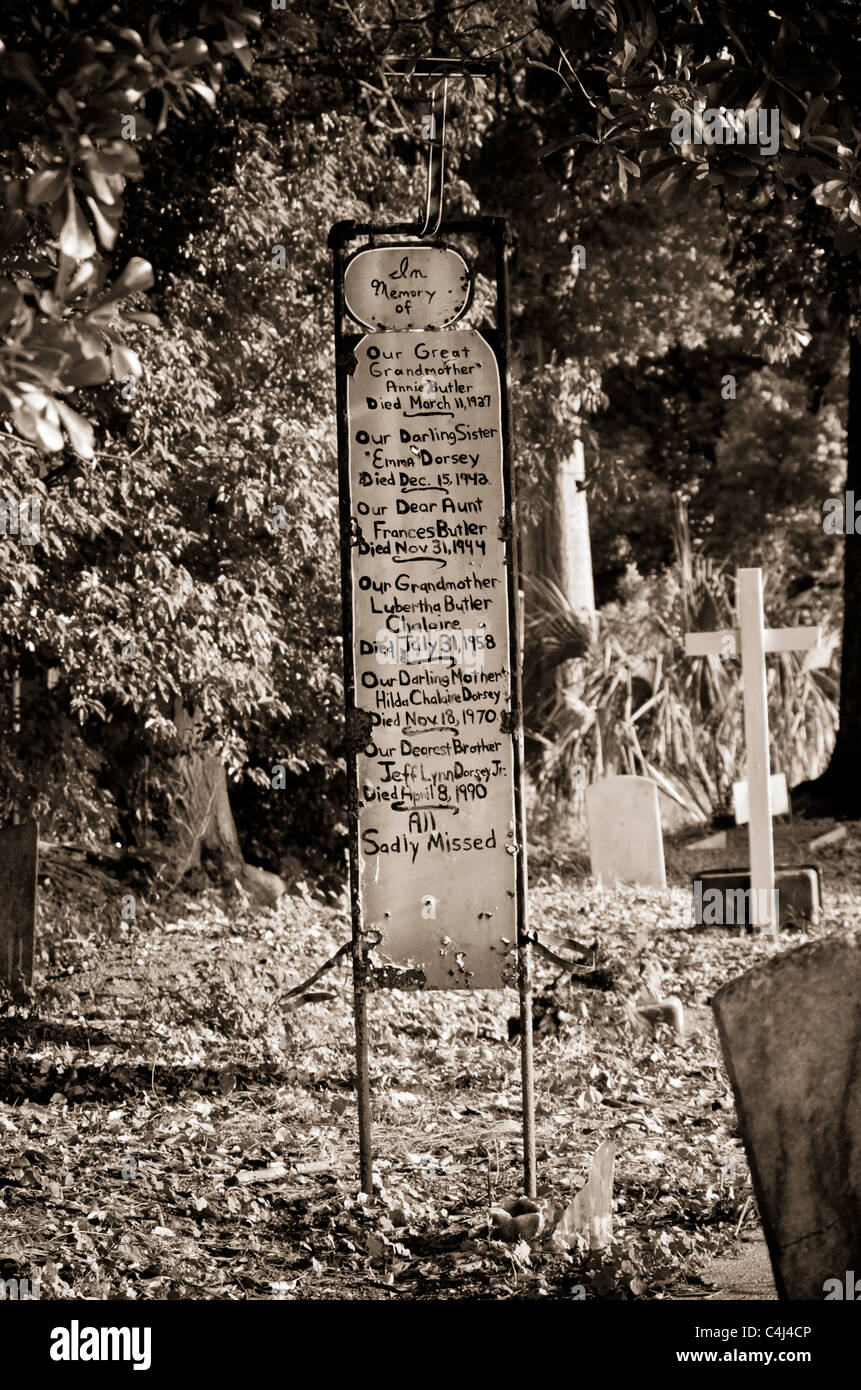 In
Memory
of
Our Great
Grandmother
Annie Butler
Died March 11, 1927
Our Darling Sister
"Emma" Dorsey
Died Dec. 15, 1942
Our Dear Aunt
Frances Butler
Died Nov 31, 1944
Our Grandmother
Lubertha Butler
Chalaire
Died July 31, 1958
Our Darling Mother
Hilda Chalaire Dorsey
Died Nov. 18, 1970
Our Dearest Brother
Jeff Lynn Dorsey Jr.
Died April 8, 1990
All
Sadly Missed
alamy
alamy stock photo
C4J4CP
www.alamy.com